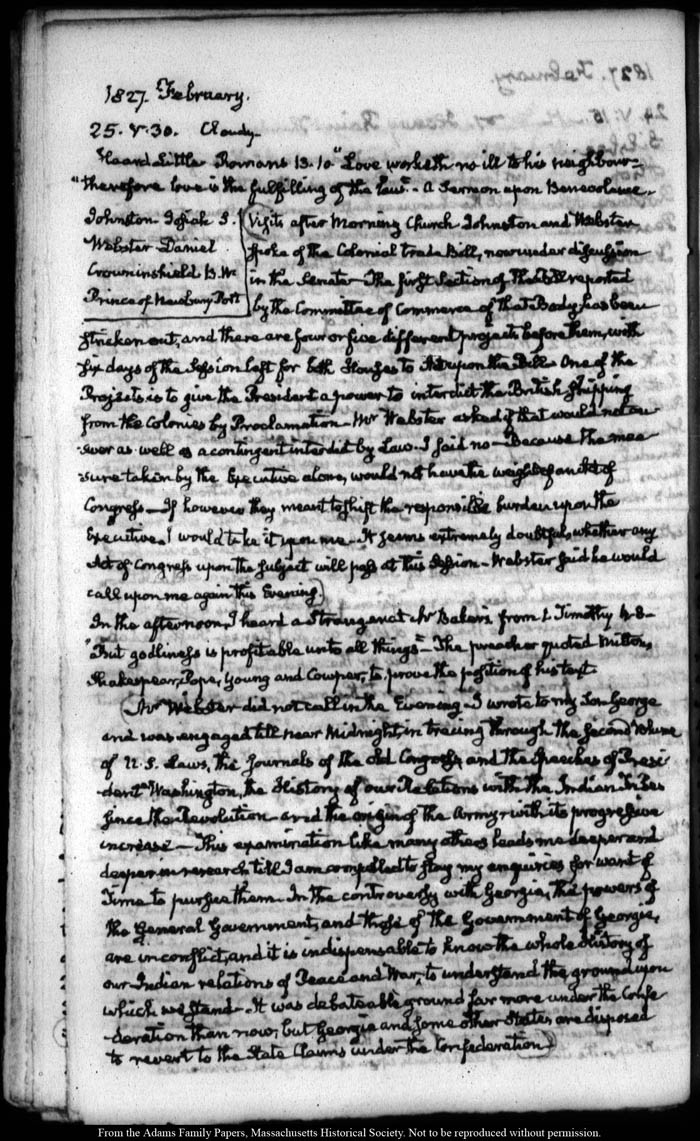 1827. February.
25. V:30. Cloudy.
Heard Little Romans 13.10 "Love worketh no ill to his neighbour—
"therefore love is the fulfilling of the law". - A Sermon upon Benevolence.
Johnston Josiah S.
Webster Daniel
Crowninshield B. W.
Prince of Newbury Port
Visits after Morning Church Johnston and Webster
spoke of the Colonial trade Bill, now under discussion
in the Senate— The first Section of the Bill reported
by the Committee of Commerce of that Body has been
stricken out, and there are four or five different projects before them, with
six days of the Session left for both Houses to Act upon the Bill. One of the
Projects is to give the President a power to interdict the British Shipping
from the Colonies by Proclamation— Mr Webster asked if that would not an
-swer as well as a contingent interdict by Law. I said no— Because the mea
-sure taken by the Executive alone, would not have the weight of an Act of
Congress— If however they meant to shift the responsible burden upon the
Executive, I would take it upon me— It seems extremely doubtful, whether any
Act of Congress upon the subject will pass at this Session— Webster said he would
call upon me again this Evening)
In the afternoon, I heard a Stranger at Mr Baker's from 1. Timothy 4.8—
"But godliness is profitable unto all things"— The preacher quoted Milton,
Shakespear, Pope, Young and Cowper, to prove the position of his text.
(Mr Webster did not call in the Evening— I wrote to my Son George
and was engaged till near Midnight, in tracing through the second volume
of U. S. Laws, the Journals of the old Congress, and the Speeches of Presi
dent Washington, the History of our Relations with the Indian Tribes
since the Revolution— and the origin of the Army, with its progressive
increase— This examination like many others leads me deeper and
deeper in research till I am compelled to stay my enquiries for want of
Time to pursue them. In the controversy with Georgia, the powers of
the General Government, and those of the Government of Georgia,
are in conflict, and it is indispensable to know the whole History of
our Indian relations of Peace and War, to understand the ground upon
which we stand. It was debateable ground far more under the Confe
-deration than now; but Georgia and some other States are disposed
to revert to the State Claims under the Confederation)
From the Adams Family Papers, Massachusetts Historical Society. Not to be reproduced without permission.